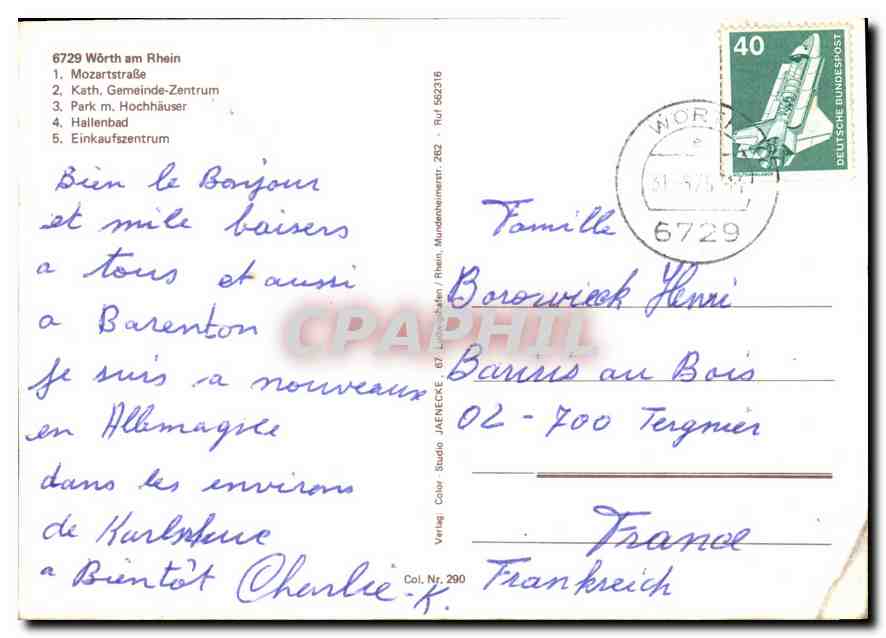 6729 Wörth am Rhein
1. Mozartstraße
2. Kath. Gemeinde-Zentrum
3. Park m. Hochhäuser
4. Hallenbad
5. Einkaufszentrum
Bien le Bonjour
et mile baisers
a tous et aussi
a Barenton
je suis a nouveaux
en Allemagne
dans les environs
de Karlsruhe
a Bientôt Charlie-K.
Verlag: Color-Studio JAENECKE, 67 Ludwigshafen/Rhein, Mundenheimerstr. 262 - Ruf 562316
Col. Nr. 290
40
DEUTSCHE BUNDESPOST
WÖRTH
e
6729
Famille
Borowieck Henri
au Bois
02-700 Tergnier
France
Frankreich
CPAPHIL